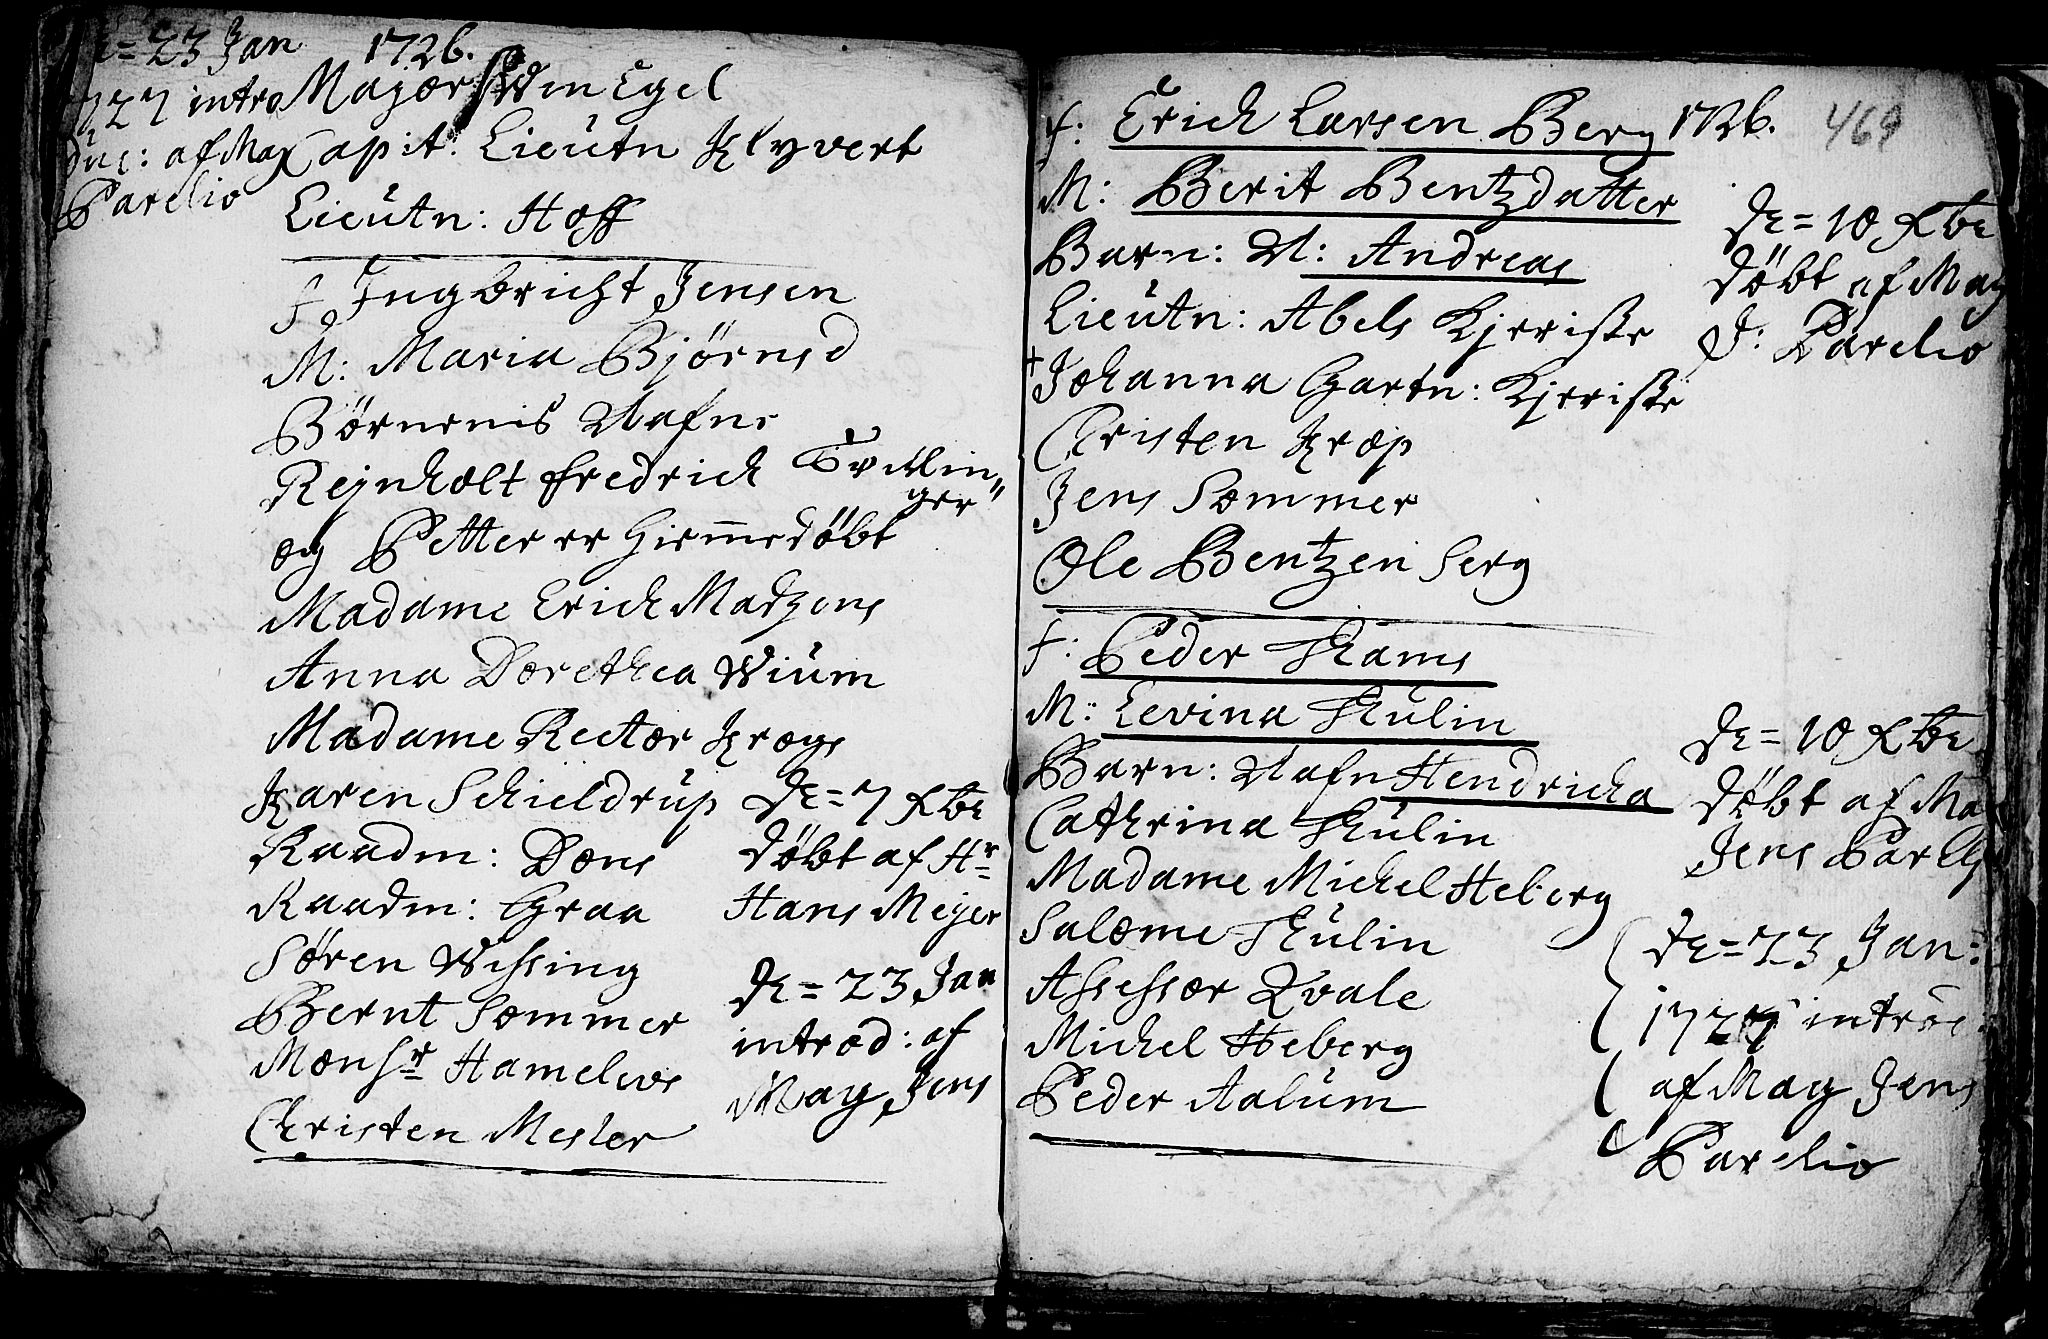 De = 23 Jan 1726.
1727 intro
duc: af Mag
Parelio
Major Von Egel
Capit: Lieutn Klyvert
Lieutn: Hoff
F Ingbricht Jensen
M: Maria Bjørnsd
Børnenis Nafne
Rejnholt Fredrich Tvillin„
ger„
og Petter er Hiemedøbt
Madame Erich Madzens
Anna Dorethea Wium
Madame Rector Krogs
Karen Schieldrup
Raadm: Dons
Raadm: Graa
Søren Wissing
Bernt Sommer
Monsr Hamelvs
Christen Mesler
De = 7 Xbr
døbt af Hr
Hans Meyer
De = 23 Jan
introd: af
Mag Jens
469
F: Erich Larsen Berg 1726.
M: Berit Bentzdatter
Barn: N: Andreas
Lieutn: Abels Kjeriste
+ Johanna Gartn: Kjeriste
Christen Krop
Jens Sommer
Ole Bentzen Serg
De = 10 Xbr
døbt af Mag
J: Parelio
F: Peder Thams
M: Levina Thulin
Barn: Nafn Hendricha
Cathrina Thulin
Madame Michel Heberg
Salome Thulin
Assessor Qvale
Michel Heberg
Peder Aalum
De = 10 Xbr
døbt af Ma
Jens Parelio
De = 23 Jan:
1727 introd
af Mag Jens
Parelio